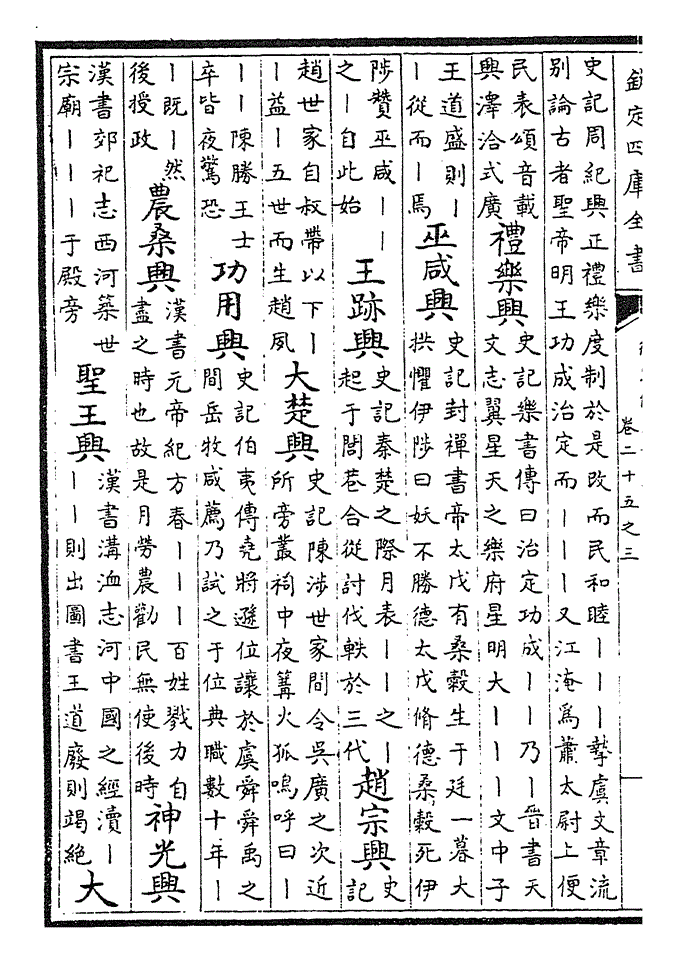 欽定四庫全書
卷二十五之三
史記周紀興正禮樂度制於是改而民和睦｜｜｜摯虞文章流
別論古者聖帝明王功成治定而｜｜｜又江淹爲蕭太尉上便
民表頌音載
興澤洽式廣
禮樂興
史記樂書傳曰治定功成｜｜乃｜晉書天
文志翼星天之樂府星明大｜｜｜文中子
王道盛則｜
｜從而｜焉
巫咸興
史記封禪書帝太戊有桑穀生于廷一暮大
拱懼伊陟曰妖不勝德太戊脩德桑穀死伊
陟贊巫咸｜｜
之｜自此始
王跡興
史記秦楚之際月表｜｜之｜
起于閭巷合從討伐軼於三代
趙宗興
史
記
趙世家自叔帶以下｜
｜益｜五世而生趙夙
大楚興
史記陳涉世家間令吳廣之次近
所旁叢祠中夜篝火狐鳴呼曰｜
｜｜陳勝王士
卒皆夜驚恐
功用興
史記伯夷傳堯將遜位讓於虞舜舜禹之
間岳牧咸薦乃試之于位典職數十年｜
｜既｜然
後授政
農桑興
漢書元帝紀方春｜｜｜百姓戮力自
盡之時也故是月勞農勸民無使後時
神光興
漢書郊祀志西河築世
宗廟｜｜｜于殿旁
聖王興
漢書溝洫志河中國之經瀆｜
｜｜則出圖書王道廢則竭絶
大